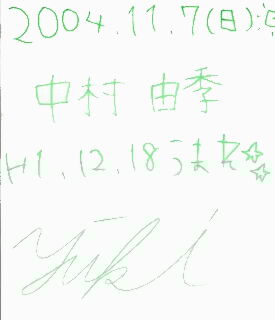 2004.11.7(日)
中村 由季
H1.12.18うまれ☆☆
Yuki